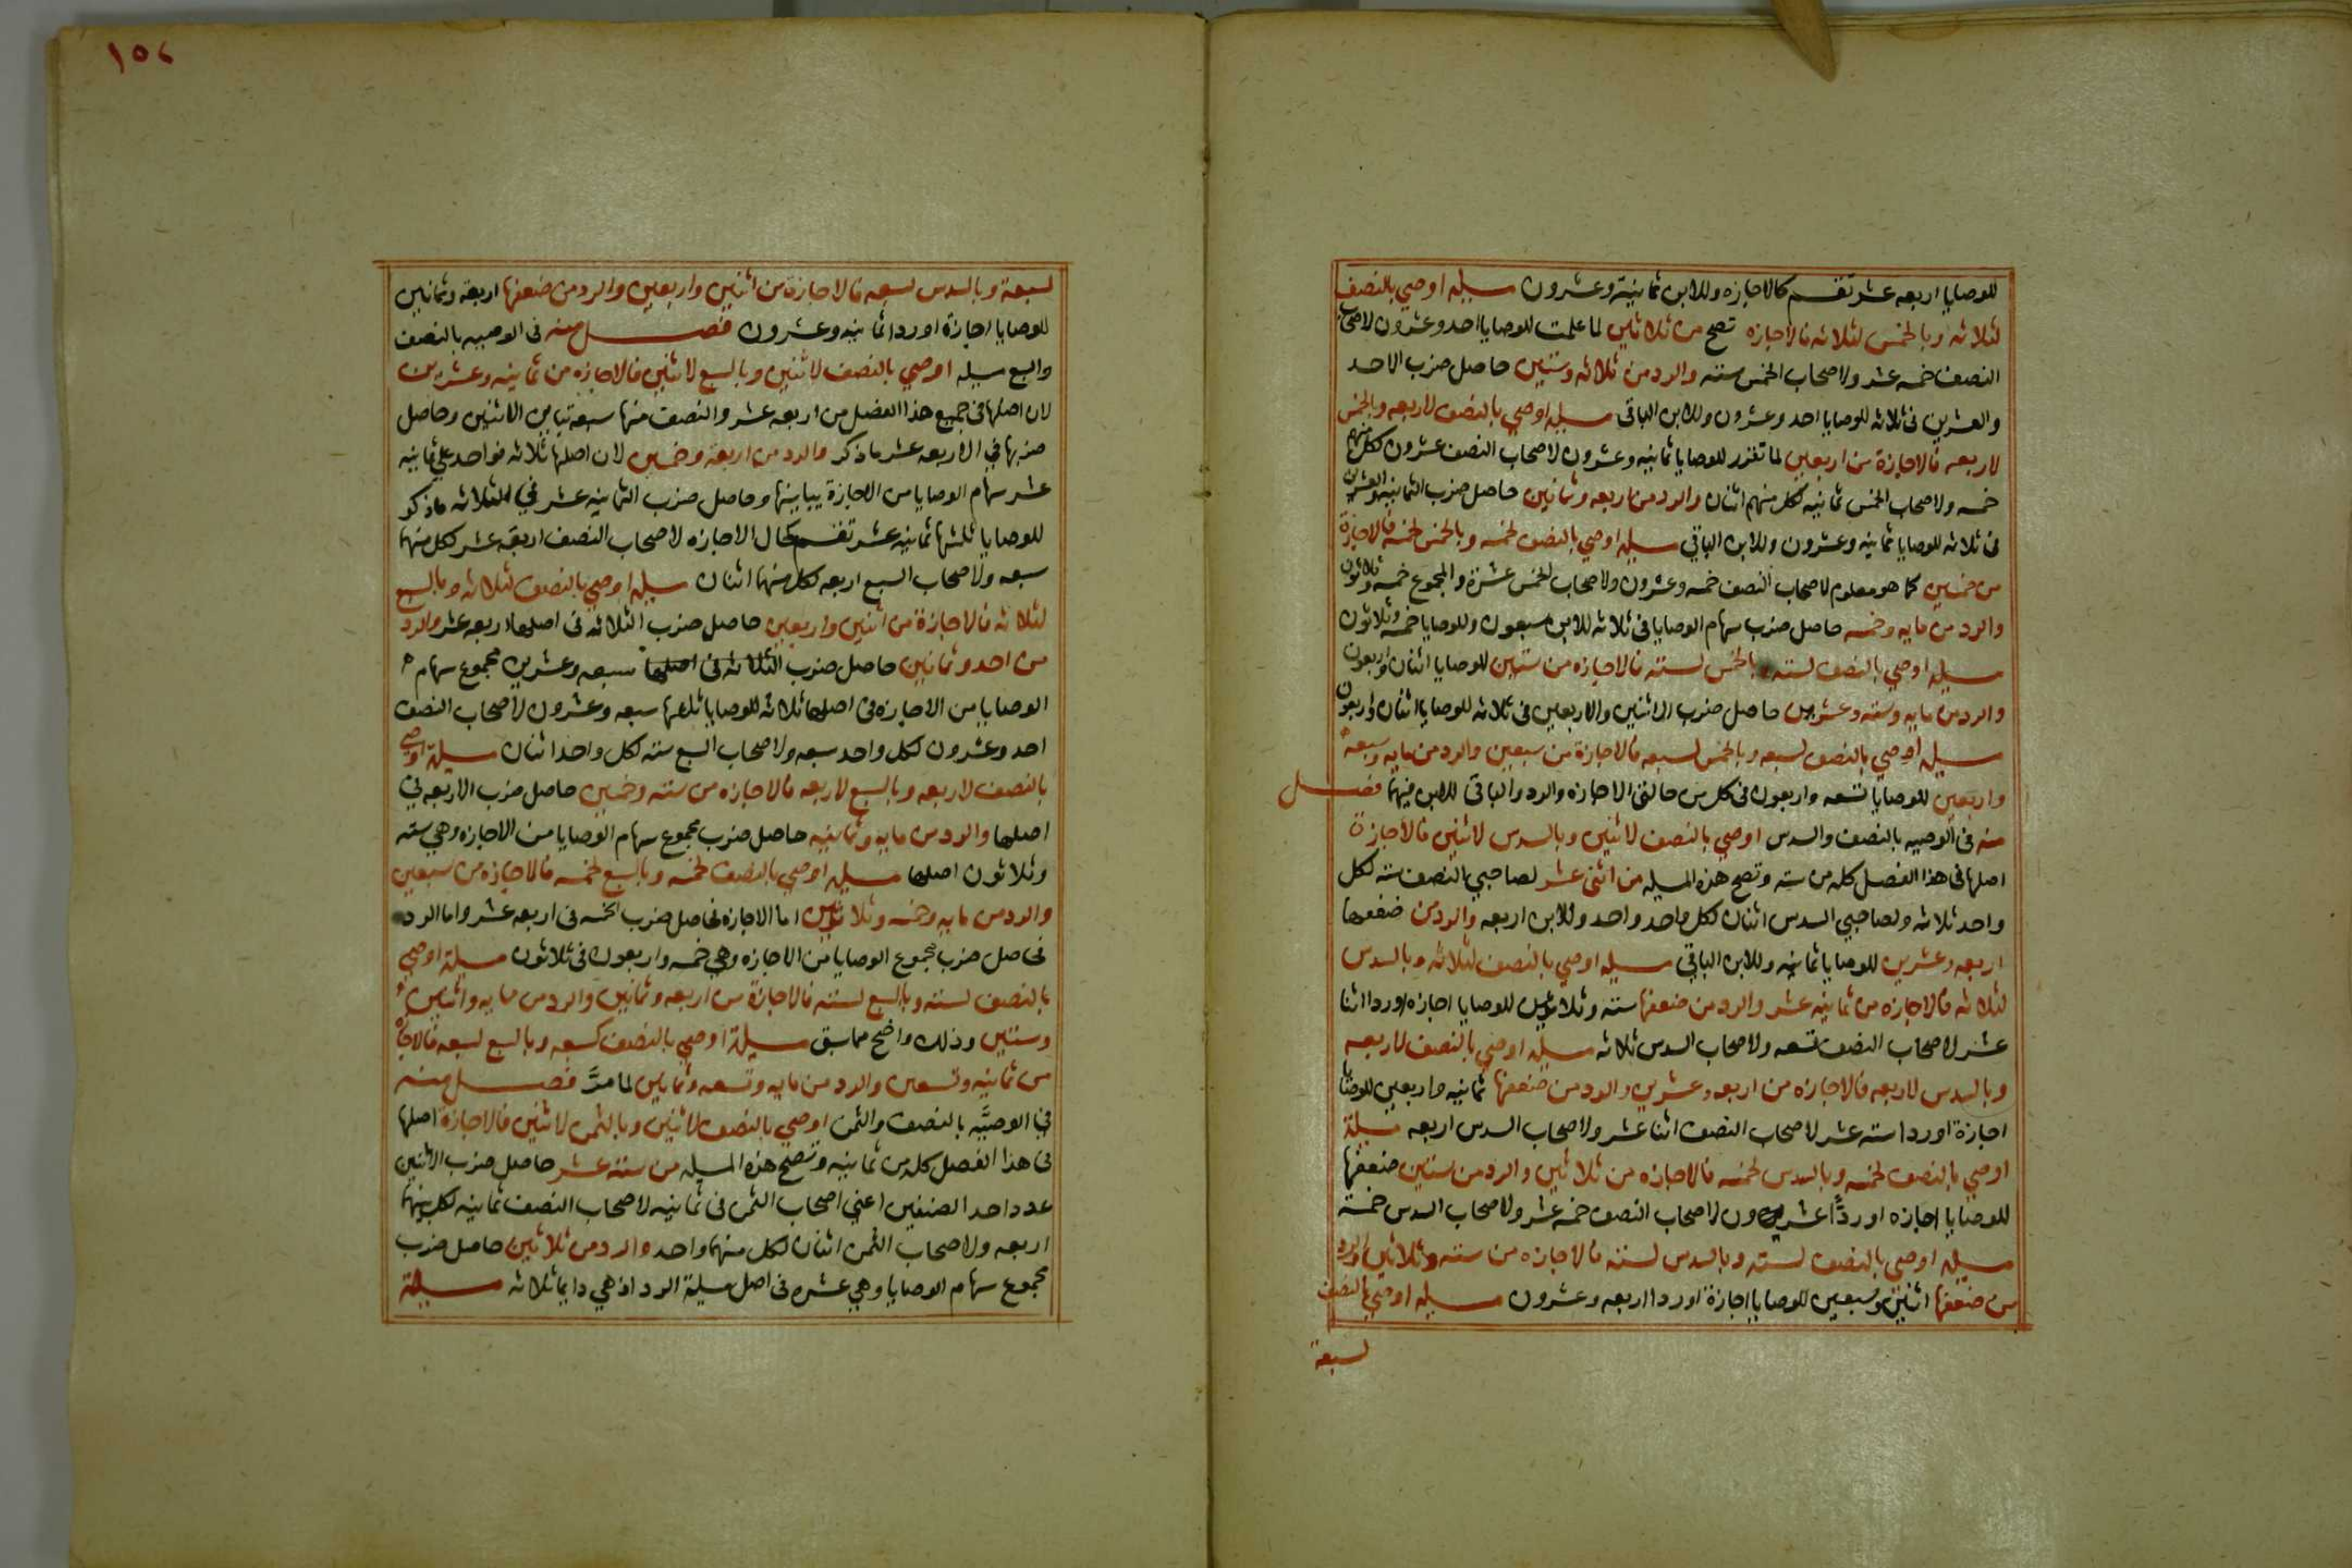 للوصايا اربعه عشر تقسم كالاجازه وللابن ثمانية وعشرون مسيله اوصي بالنصف
لثلاثه وبالخمس لثلاثه فالاجازه تصح من ثلاثين لما علمت للوصايا احد وعشرون لاصحاب
النصف خمسه عشر ولاصحاب الخمس سته والرد من ثلاثه وستين حاصل ضرب الاحد
والعشرين فى ثلاثه للوصايا احد وعشرون وللابن الباقى مسيله اوصي بالنصف لاربعه وبالخمس
لاربعه فالاجازة من اربعين لما تقرر للوصايا ثمانيه وعشرون لاصحاب النصف عشرون لكل منهم
خمسه ولاصحاب الخمس ثمانيه لكل منهم اثنان والرد من اربعه وثمانين حاصل ضرب الثمانيه والعشرين
فى ثلاثه للوصايا ثمانيه وعشرون وللابن الباقي مسيله اوصي بالنصف لخمسه وبالخمس لخمسه فالاجازة
من خمسين كما هو معلوم لاصحاب النصف خمسه وعشرون ولاصحاب الخمس عشرة والمجموع خمسه وثلاثون
والرد من مايه وخمسه حاصل ضرب سهام الوصايا فى ثلاثه للابن سبعون وللوصايا خمسه وثلاثون
مسيله اوصي بالنصف لسته وبالخمس لسته فالاجازه من ستين للوصايا اثنان واربعون
والرد من مايه وسته وعشرين حاصل ضرب الاثنين والاربعين فى ثلاثه للوصايا اثنان واربعون
مسيله اوصي بالنصف لسبعه وبالخمس لسبعه فالاجازة من سبعين والرد من مايه وسبعة
واربعين للوصايا تسعه واربعون فى كل من حالتى الاجازه والرد والباقى للابن فيهما فصل
منه فى الوصيه بالنصف والسدس اوصي بالنصف لاثنين وبالسدس لاثنين فالاجازة
اصلها فى هذا الفصل كله من سته وتصح هذه المسيله من اثنى عشر لصاحبي النصف سته لكل
واحد ثلاثه ولصاحبي السدس اثنان لكل واحد واحد وللابن اربعه والرد من ضعفها
اربعه وعشرين للوصايا ثمانيه وللابن الباقي مسيله اوصي بالنصف لثلاثه وبالسدس
لثلاثه فالاجازه من ثمانيه عشر والرد من ضعفها سته وثلاثين للوصايا اجازه اوردا اثنا
عشر لاصحاب النصف تسعه ولاصحاب السدس ثلاثه مسيله اوصي بالنصف لاربعه
وبالسدس لاربعه فالاجازه من اربعه وعشرين والرد من ضعفها ثمانيه واربعين للوصايا
اجازة اوردا سته عشر لاصحاب النصف اثنا عشر ولاصحاب السدس اربعه مسيلة
اوصي بالنصف لخمسه وبالسدس لخمسه فالاجازه من ثلاثين والرد من ستين ضعفها
للوصايا اجازه اوردًّا عشرون لاصحاب النصف خمسه عشر ولاصحاب السدس خمسة
مسيله اوصي بالنصف لسته وبالسدس لسته فالاجازه من سته وثلاثين والرد
من ضعفها اثنين وسبعين للوصايا اجازة اوردا اربعه وعشرون مسيله اوصي بالنصف
لسبعة
١٥٧
لسبعة وبالسدس لسبعه فالاجازة من اثنين واربعين والرد من ضعفها اربعه وثمانين
للوصايا اجازة اوردا ثمانيه وعشرون فصل منه فى الوصيه بالنصف
والسبع مسيله اوصي بالنصف لاثنين وبالسبع لاثنين فالاجازه من ثمانيه وعشرين
لان اصلها فى جميع هذا الفصل من اربعه عشر والنصف منها سبعه تباين الاثنين وحاصل
ضربها في الاربعه عشر ما ذكر والرد من اربعة وخمسين لان اصلها ثلاثه فواحد علي ثمانيه
عشر سهام الوصايا من الاجازة يباينها وحاصل ضرب الثمانيه عشر في الثلاثه ما ذكر
للوصايا ثلثها ثمانيه عشر تقسم كحال الاجازه لاصحاب النصف اربعة عشر لكل منهما
سبعه ولاصحاب السبع اربعه لكل منهما اثنان مسيله اوصي بالنصف لثلاثه وبالسبع
لثلاثه فالاجازة من اثنين واربعين حاصل ضرب الثلاثه فى اصلها اربعه عشر والرد
من احد وثمانين حاصل ضرب الثلاثه فى اصلها سبعه وعشرين مجموع سهام
الوصايا من الاجازه فى اصلها ثلاثه للوصايا ثلثها سبعه وعشرون لاصحاب النصف
احد وعشرون لكل واحد سبعه ولاصحاب السبع سته لكل واحد اثنان مسيلة اوصي
بالنصف لاربعه وبالسبع لاربعه فالاجازه من سته وخمسين حاصل ضرب الاربعه في
اصلها والرد من مايه وثمانيه حاصل ضرب مجموع سهام الوصايا من الاجازه وهي سته
وثلاثون اصلها مسيله اوصي بالنصف لخمسه وبالسبع لخمسه فالاجازه من سبعين
والرد من مايه وخمسه وثلاثين اما الاجازه فحاصل ضرب الخمسه فى اربعه عشر واما الرد
فحاصل ضرب مجموع الوصايا من الاجازه وهي خمسه واربعون فى ثلاثون مسيلة اوصي
بالنصف لسته وبالسبع لسته فالاجازة من اربعه وثمانين والرد من مايه واثنين
وستين وذلك واضح مما سبق مسيلة اوصي بالنصف لسبعه وبالسبع لسبعه فالاجازه
من ثمانيه وتسعين والرد من مايه وتسعه وثمانين لما مرَّ فصل منه
في الوصيَّه بالنصف والثمن اوصي بالنصف لاثنين وبالثمن لاثنين فالاجازة اصلها
فى هذا الفصل كله من ثمانيه وتصح هذه المسيله من سته عشر حاصل ضرب الاثنين
عدد احد الصنفين اعني اصحاب الثمن فى ثمانيه لاصحاب النصف ثمانيه لكل منهما
اربعه ولاصحاب الثمن اثنان لكل منهما واحد والرد من ثلاثين حاصل ضرب
مجموع سهام الوصايا وهي عشره فى اصل مسيلة الرد اذ هي دايما ثلاثه مسيلة